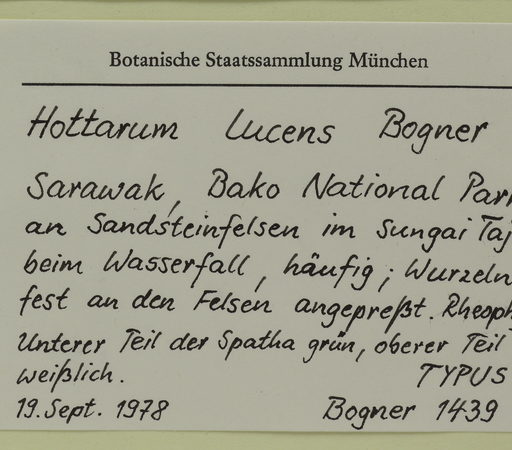 Botanische Staatssammlung München
Hottarum Lucens Bogner
Sarawak, Bako National Par
an Sandsteinfelsen im Sungai Taj
beim Wasserfall, häufig; Wurzeln
fest an den Felsen angepreßt. Rheoph
Unterer Teil der Spatha grün, oberer Teil
weißlich. TYPUS
19. Sept. 1978 Bogner 1439